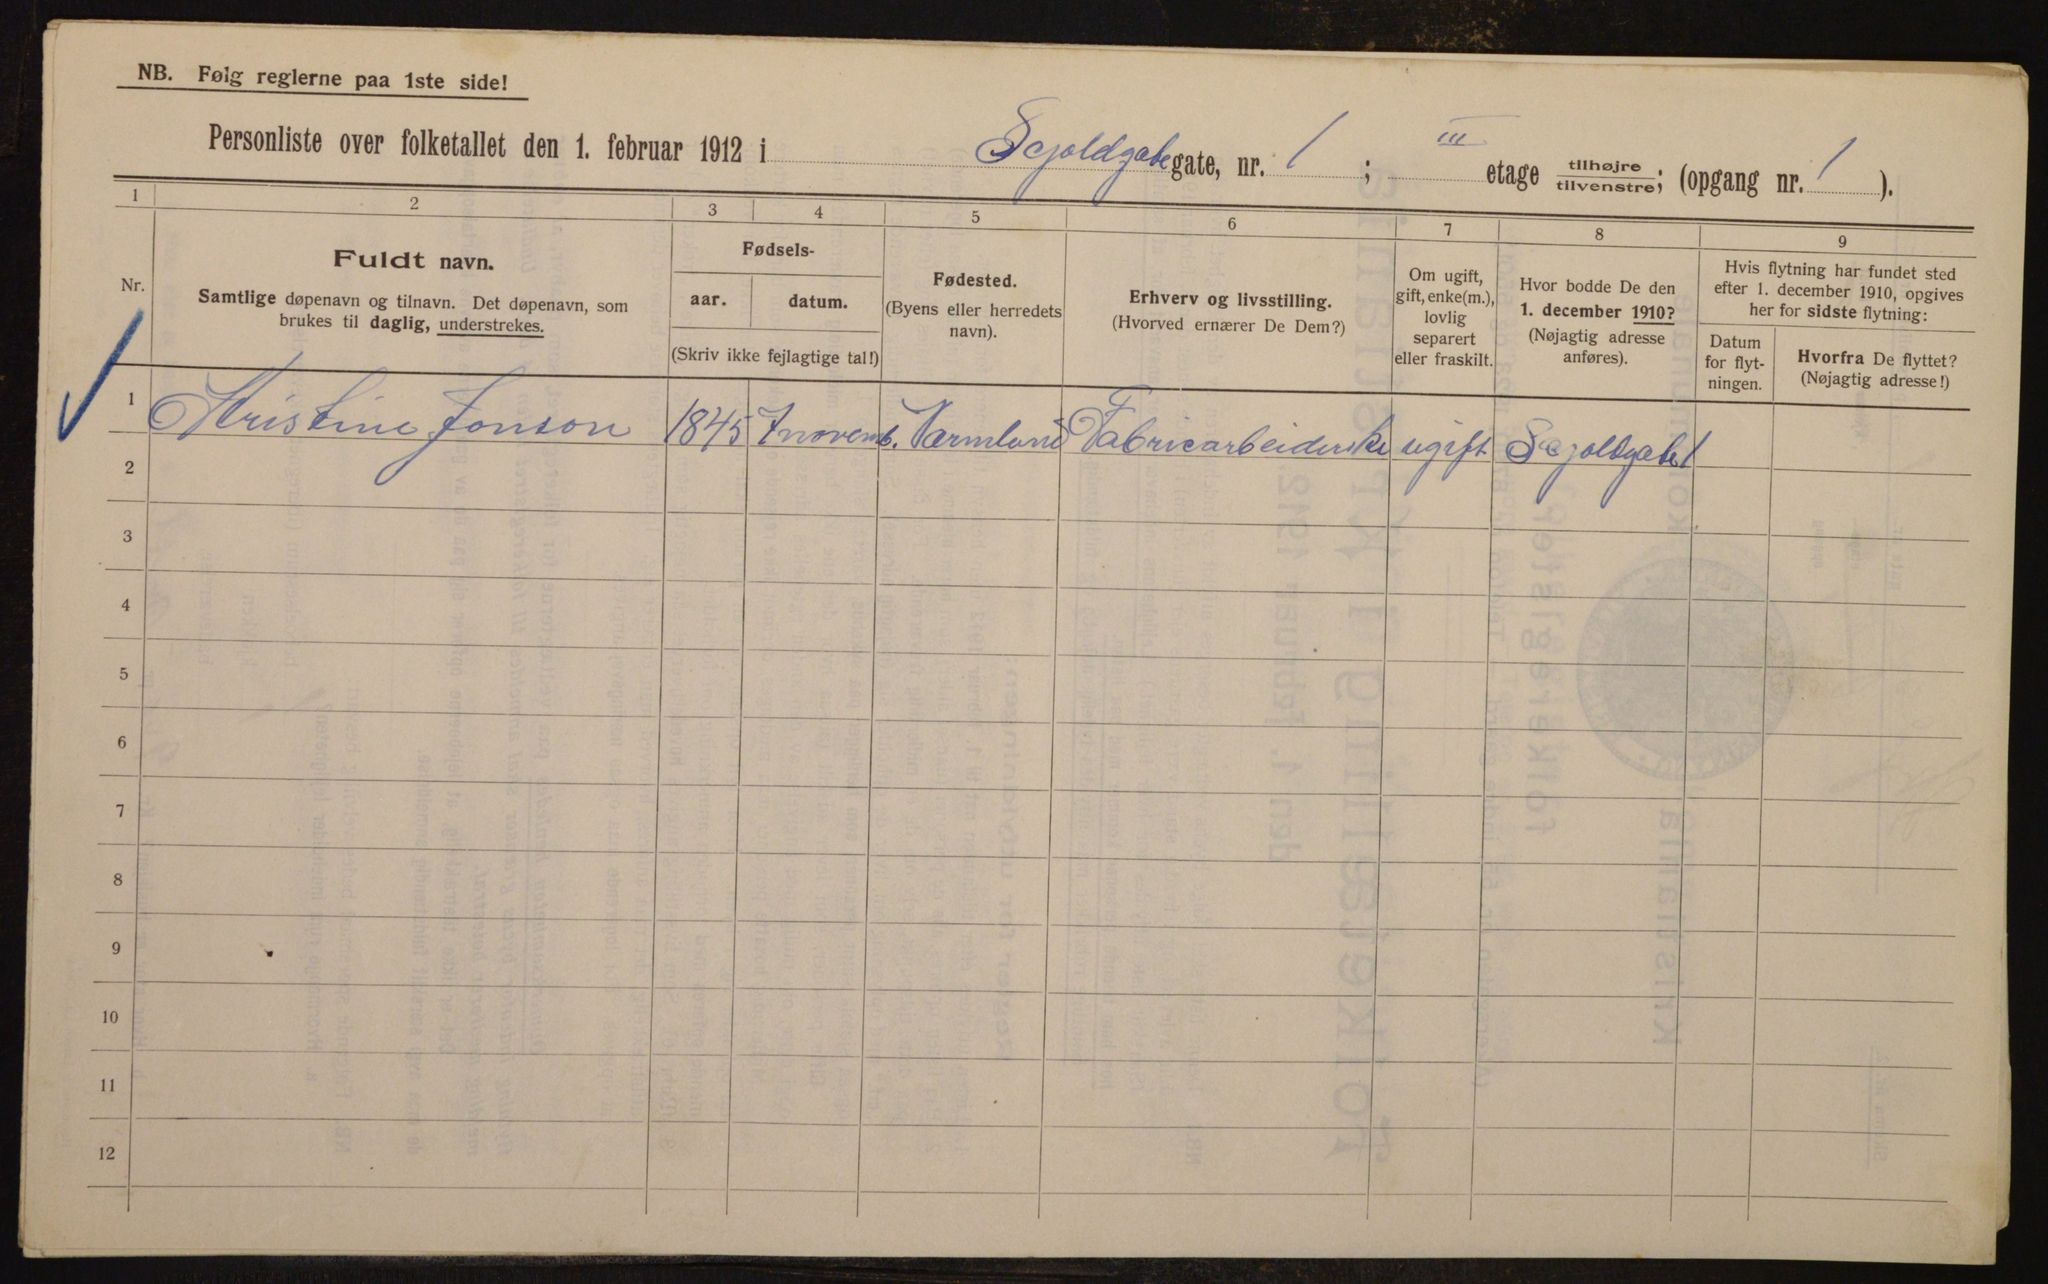 NB. Følg reglerne paa 1ste side!
Personliste over folketallet den 1. februar 1912 i Scjoldgabe gate, nr. 1 ; III etage tilhøjre tilvenstre; (opgang nr. 1 ).
1 2 3 4 5 6 7 8 9
Nr.
Fuldt navn.
Samtlige døpenavn og tilnavn. Det døpenavn, som
brukes til daglig, understrekes.
Fødsels-
aar. datum.
(Skriv ikke fejlagtige tal!)
Fødested.
(Byens eller herredets
navn).
Erhverv og livsstilling.
(Hvorved ernærer De Dem?)
Om ugift,
gift, enke(m.),
lovlig
separert
eller fraskilt.
Hvor bodde De den
1. december 1910?
(Nøjagtig adresse
anføres).
Hvis flytning har fundet sted
efter 1. december 1910, opgives
her for sidste flytning:
Datum
for flyt-
ningen.
Hvorfra De flyttet?
(Nøjagtig adresse!)
1 Kristine Jonson 1845 7 novemb. Værmland Fabricarbeiderske ugift Scjoldgabe 1
2
3
4
5
6
7
8
9
10
11
12